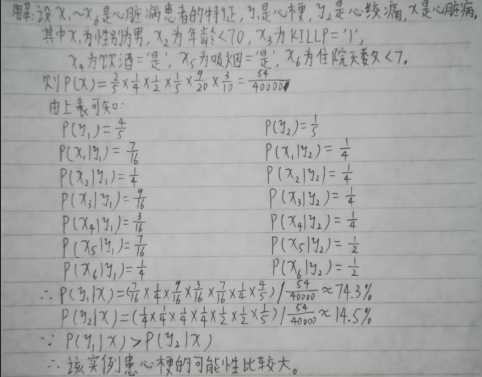 解:设x₁~x₆是心脏病患者的特征,y₁是心梗,y₂是心绞痛,x是心脏病。
其中x₁为性别为男,x₂为年龄<70,x₃为KILLP='1',
x₄为饮酒='是',x₅为吸烟='是',x₆为住院天数<7。
则P(x)=3/5×1/4×1/2×1/5×9/20×3/10=54/40000
由上表可知:
P(y₁)=4/5 P(y₂)=1/5
P(x₁|y₁)=7/16 P(x₁|y₂)=1/4
P(x₂|y₁)=1/4 P(x₂|y₂)=1/4
P(x₃|y₁)=9/16 P(x₃|y₂)=1/4
P(x₄|y₁)=3/16 P(x₄|y₂)=1/4
P(x₅|y₁)=7/16 P(x₅|y₂)=1/2
P(x₆|y₁)=1/4 P(x₆|y₂)=1/2
∴P(y₁|x)=(7/16×1/4×9/16×3/16×7/16×1/4×4/5)/54/40000≈74.3%
P(y₂|x)=(1/4×1/4×1/4×1/4×1/2×1/2×1/5)/54/40000≈14.5%
∵P(y₁|x)>P(y₂|x)
∴该实例患心梗的可能性比较大。